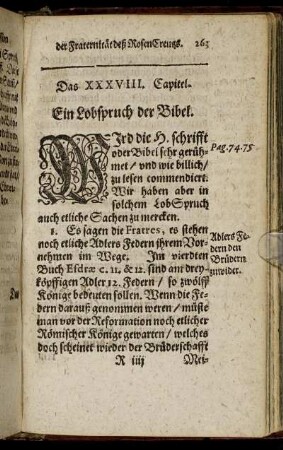 der Fraternität deß RosenCreutzs. 263
Das XXXVIII. Capitel.
Ein Lobspruch der Bibel.
WIrd die H. schrifft
oder Bibel sehr gerüh-
met / vnd wie billich /
zu lesen commendiert.
Wir haben aber in
solchem LobSpruch
auch etliche Sachen zu mercken.
Pag. 74. 75.
1. Es sagen die Fratres, es stehen
noch etliche Adlers Federn ihrem Vor-
nehmen im Wege. Im vierdten
Buch Esdræ c. 11. & 12. sind am drey-
köpffigen Adler 12. Federn / so zwölff
Könige bedeuten sollen. Wenn die Fe-
dern darauß genommen weren / müste
man vor der Reformation noch etlicher
Römischer Könige gewarten / welches
doch scheinet wieder der Brüderschafft
Adlers Fe-
dern den
Brüdern
zuwider.
R iiij Mei-